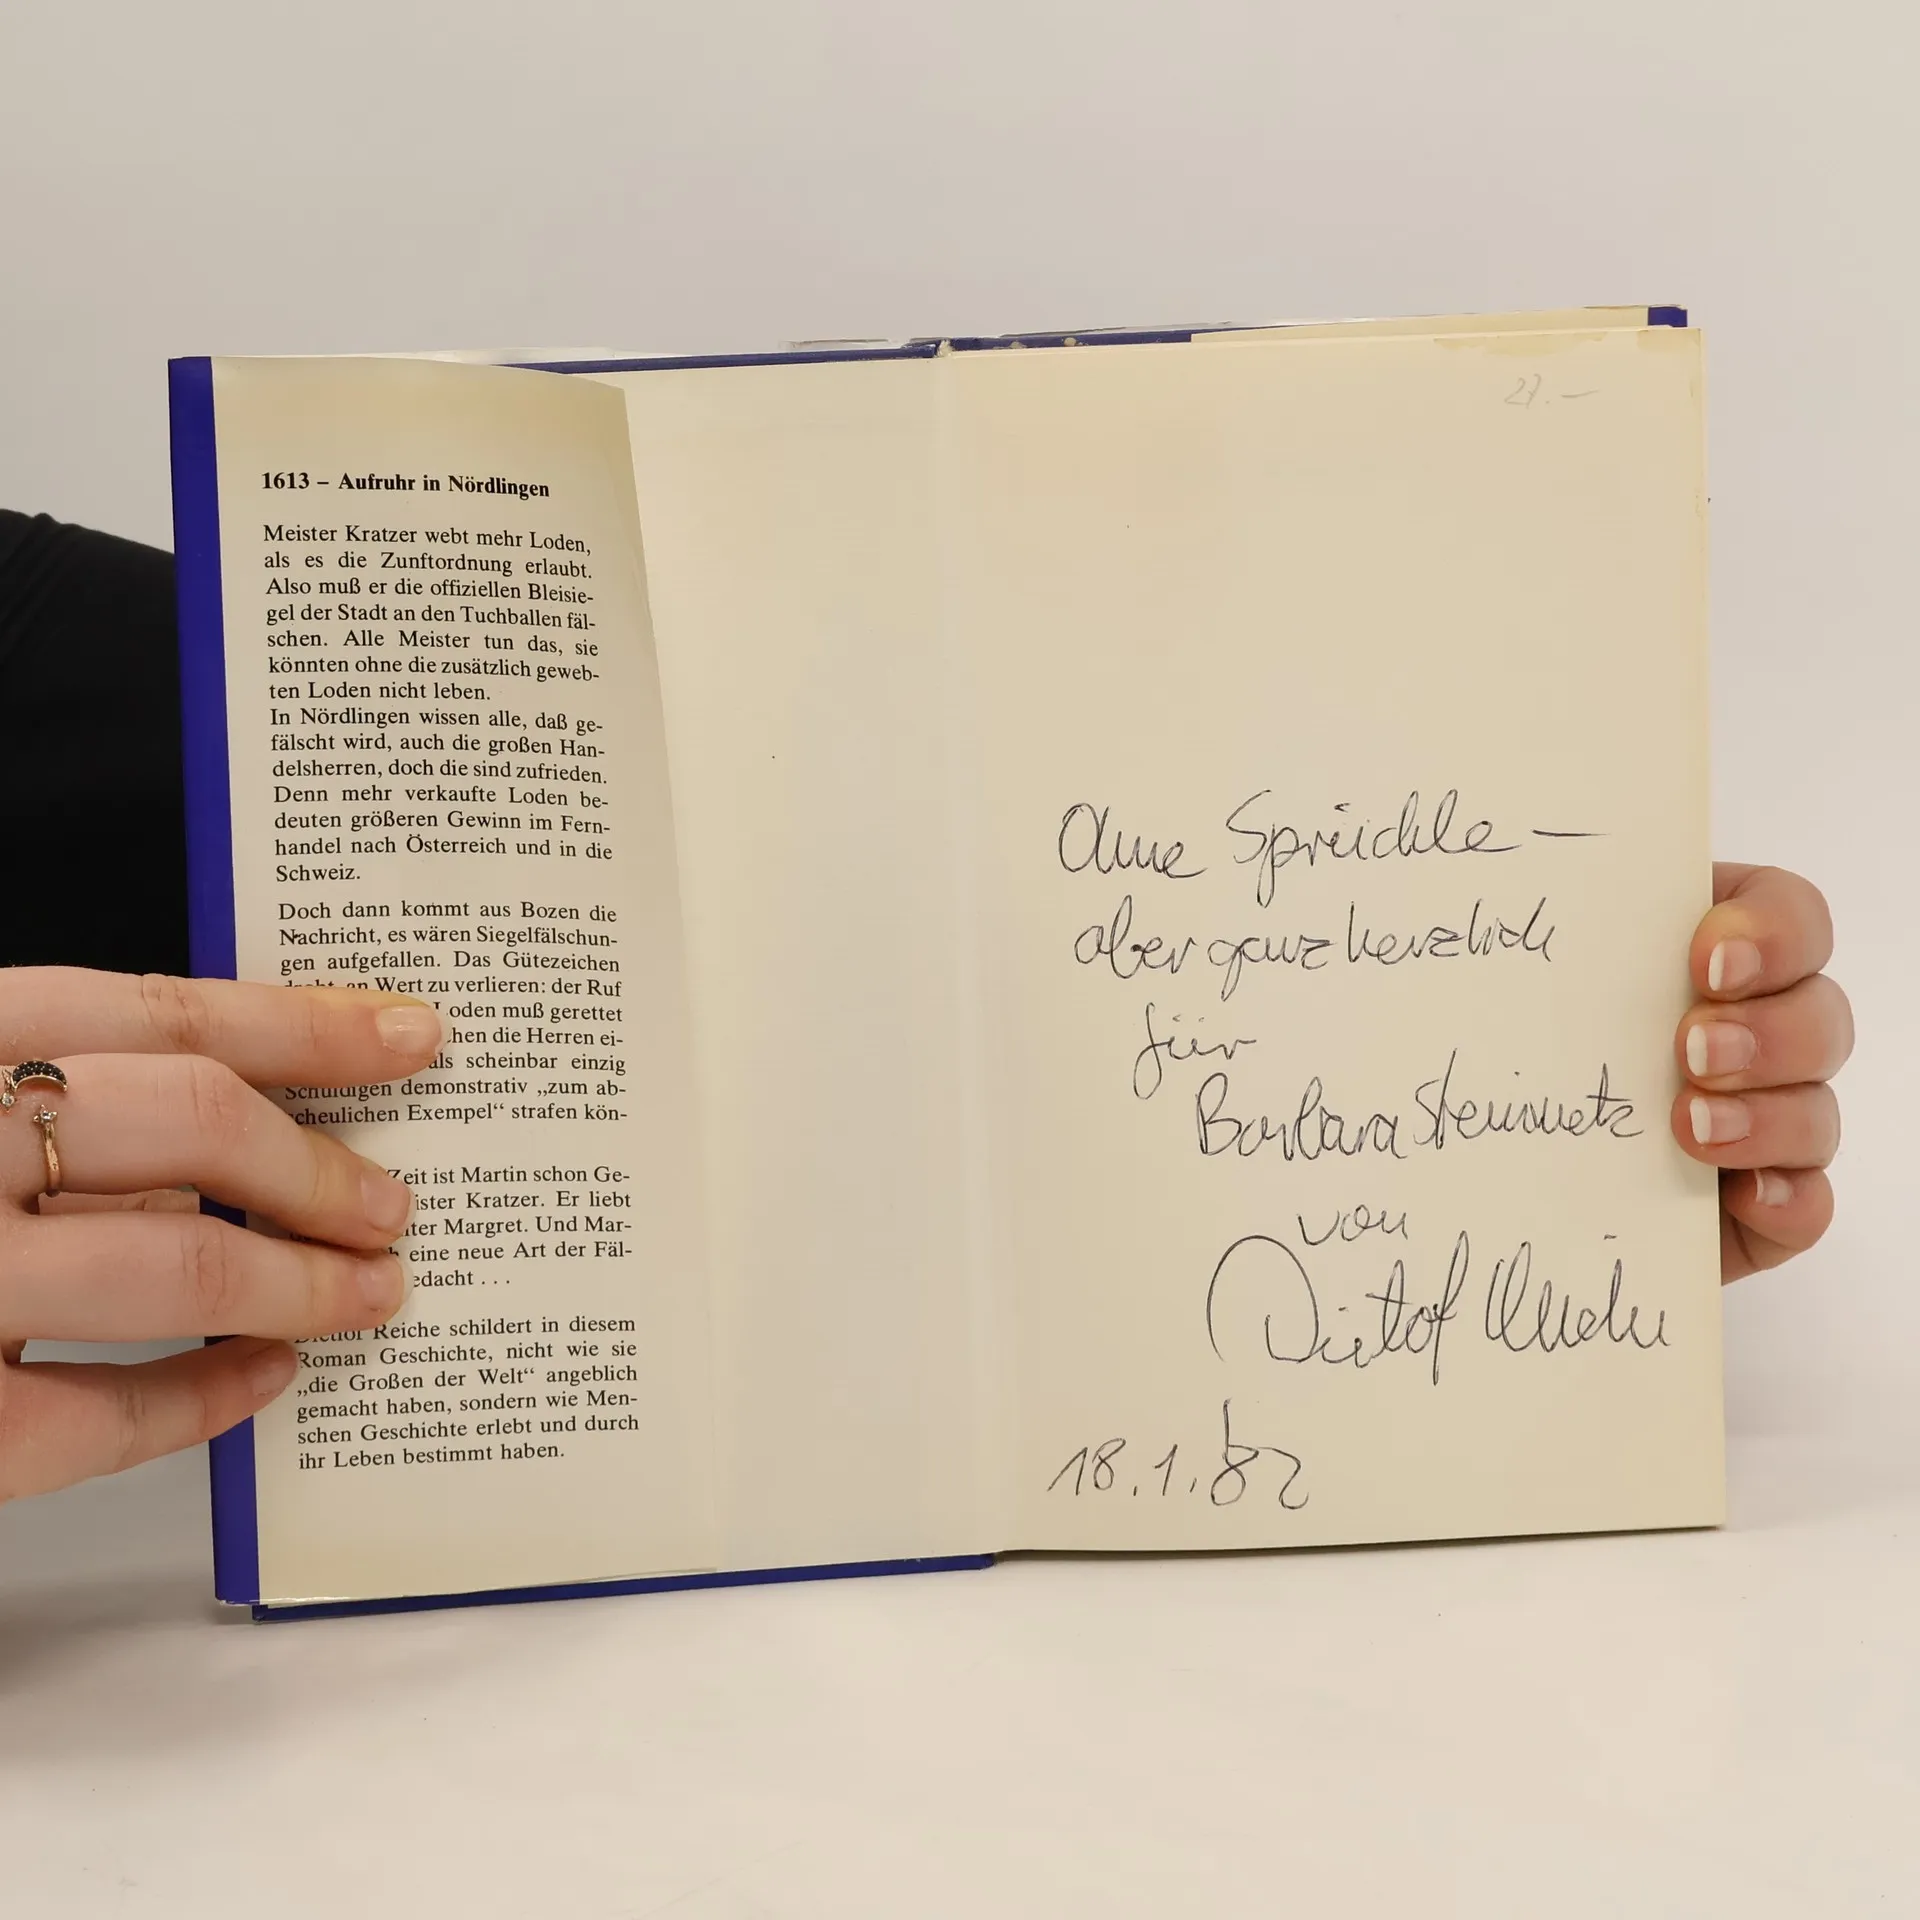 1613 – Aufruhr in Nördlingen
Meister Kratzer webt mehr Loden,
als es die Zunftordnung erlaubt.
Also muß er die offiziellen Bleisie-
gel der Stadt an den Tuchballen fäl-
schen. Alle Meister tun das, sie
könnten ohne die zusätzlich geweb-
ten Loden nicht leben.
In Nördlingen wissen alle, daß ge-
fälscht wird, auch die großen Han-
delsherren, doch die sind zufrieden.
Denn mehr verkaufte Loden be-
deuten größeren Gewinn im Fern-
handel nach Österreich und in die
Schweiz.
Doch dann kommt aus Bozen die
Nachricht, es wären Siegelfälschun-
gen aufgefallen. Das Gütezeichen
droht an Wert zu verlieren: der Ruf
Loden muß gerettet
chen die Herren ei-
als scheinbar einzig
Schuldigen demonstrativ „zum ab-
scheulichen Exempel“ strafen kön-
Zeit ist Martin schon Ge-
ister Kratzer. Er liebt
hter Margret. Und Mar-
h eine neue Art der Fäl-
edacht . . .
Dietlof Reiche schildert in diesem
Roman Geschichte, nicht wie sie
„die Großen der Welt“ angeblich
gemacht haben, sondern wie Men-
schen Geschichte erlebt und durch
ihr Leben bestimmt haben.
27.–
Ohne Sprüchle –
aber ganz herzlich
für
Barbara Steinmetz
von
Dietlof Reiche
18.1.82